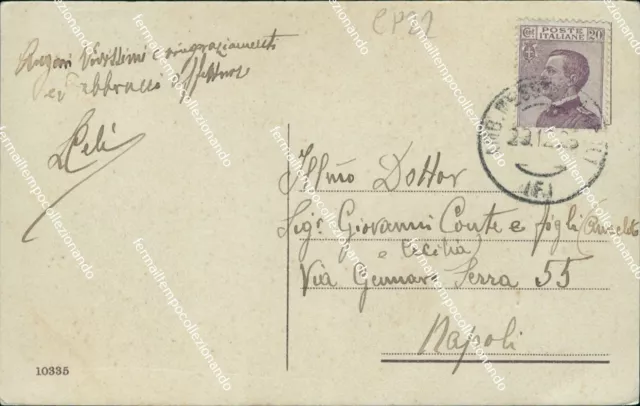 CP52
Auguri vivissimi e ringraziamenti
ed abbracci affettuosi
LCeli
POSTE
ITALIANE
20
AMB.
29.12.25
(F)
Ill/mo Dottor
Sigr Giovanni Conte e figli
e Cecilia
Via Gennaro Serra 55
Napoli
10335
fermailtempocollezionando